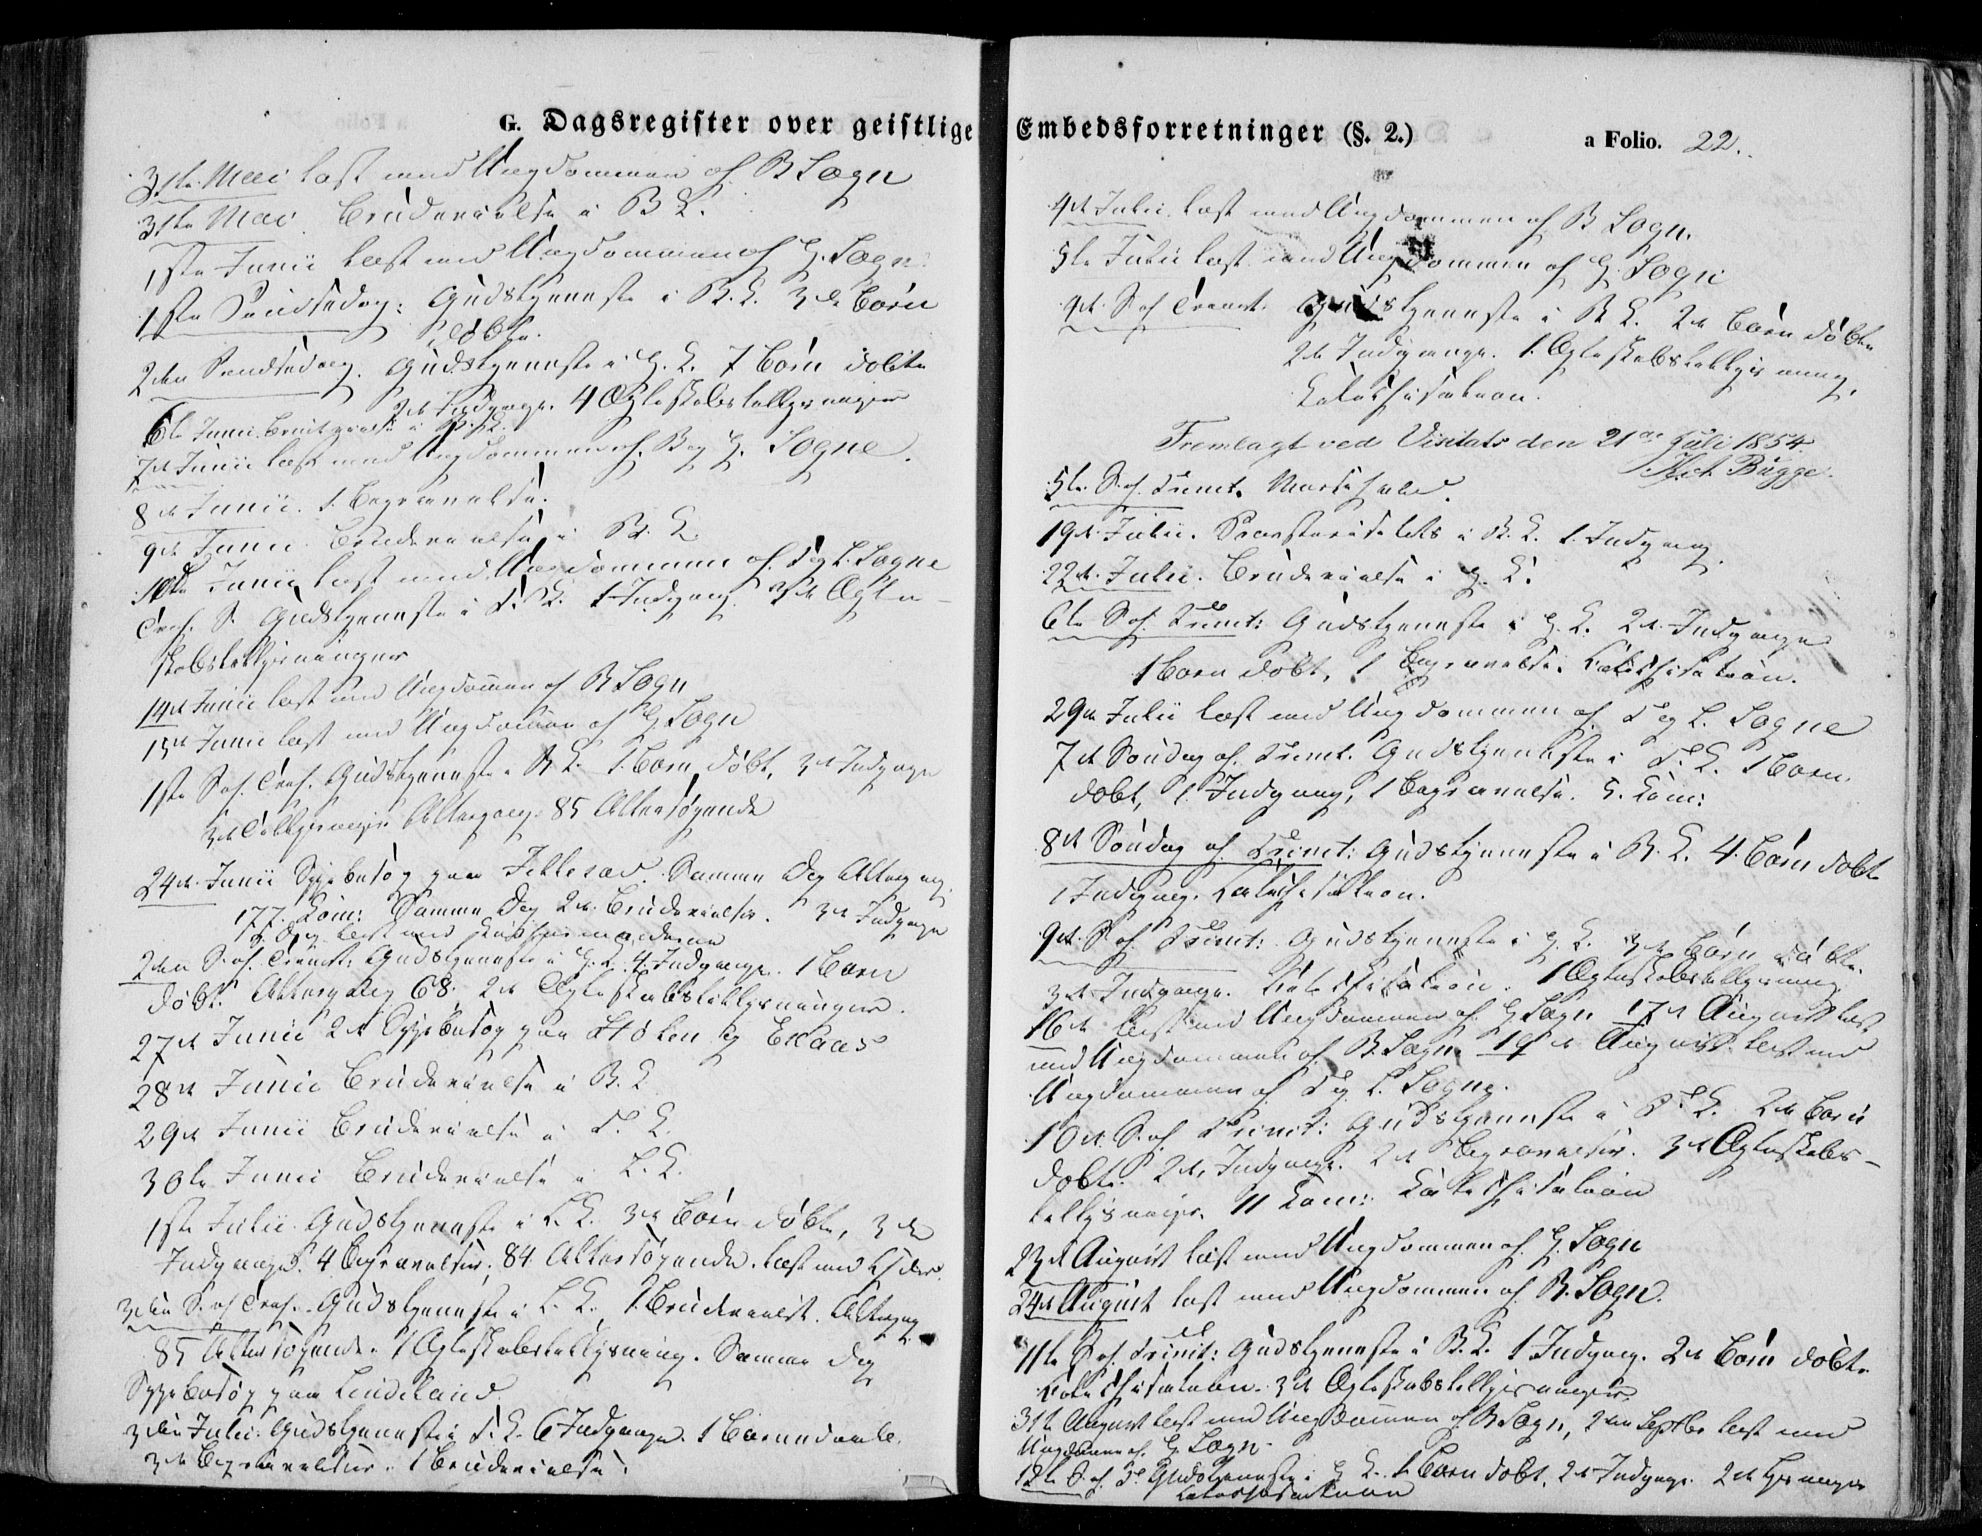 G. Dagsregister over geistlige Embedsforretninger (§. 2.) a Folio. 22.
31te Mai læst med Ungdommen af B Sogn
31te Mai Brudevielse i B K.
1ste Junii læst med Ungdommen af H. Sogn
1ste Pindsedag: Gudstjeneste i B. K. 3de Børn
døbte.
2den Pindsedag. Gudstjeneste i H. K. 7 Børn døbte
2de Indgange. 4 Ægteskabstillysninger
6te Junii Brudevielse i B. K.
7de Junii læst med Ungdommen af B og H. Sogne.
8de Junii. 1 Begravelse.
9de Junii Brudevielse i B. K.
10de Junii læst med Ungdommen af T og L. Sogne
Tref. S. Gudstjeneste i T. K. 1 Indgang. 3de Ægte-
skabstillysninger
14de Junii læst med Ungdommen af B Sogn
15de Junii læst med Ungdommen af H Sogn
1ste S. ef. Tref. Gudstjeneste i B K. 1 Barn døbt, 3de Indgange
3de Tillysninger Altergang. 85 Altersøgende
24de Junii Sygebesøg paa Samme Dag Altergang
177 Kom: Samme Dag 2de Brudevielser. 3de Indgange
læst med Konfirmanderne
2den S. ef. Trinit: Gudstjeneste i H. K. 4 Indgange. 1 Barn
døbt. Altergang 68. 2de Ægteskabstillysninger.
27de Junii 2de Sygebesøg paa Støten og Eraas
28de Junii Brudevielse i B. K
29de Junii Brudevielse i T. K.
30te Junii Brudevielse i L. K.
1ste Julii Gudstjeneste i L. K. 3de Børn døbte, 3de
Indgange. 4 Begravelser. 84 Altersøgende. læst med
3die S. ef Tref. Gudstjeneste i L. K. 1 Brudevielse. Altergang
85 Altersøgende. 1 Ægteskabstillysning. Samme Dag
Sygebesøg paa Lindeland
3die Julii Gudstjeneste i T. K. 6 Indgange. 1 Barnedaab.
3de Begravelser. 1 Brudevielse.
4de Julii læst med Ungdommen af B Sogn.
5te Julii læst med Ungdommen af H. Sogn
4de S. ef Trinit. Gudstjeneste i B K. 2de Børn døbte
2de Indgange. 1 Ægteskabstillysning.
Katechisation.
Fremlagt ved Visitats den 21de Juli 1854.
Bugge.
5te S. ef. Trinit.
19de Julii. i B. K. 1 Indgang.
22de Julii. Brudevielse i H. K.
6te S. ef. Trinit: Gudstjeneste i H. K. 2de Indgange
1 Barn døbt, 1 Begravelse. Katechisation.
29de Julii læst med Ungdommen af T og L. Sogne
7de Søndag ef. Trinit. Gudstjeneste i T. K. 1 Barn
døbt, 1 Indgang, 1 Begravelse. 5. Kom:
8de Søndag ef. Trinit: Gudstjeneste i B. K. 4 Børn døbte
1 Indgang. Katechisation.
9de S. ef. Trinit: Gudstjeneste i H. K. 3de Børn døbte.
3de Indgange. Katechisation. 1 Ægteskabstillysning
16de læst med Ungdommen af H Sogn 17de August læst
med Ungdommen af B. Sogn. 19de August læst med
Ungdommen af T og L. Sogne.
10de S. ef Trinit: Gudstjeneste i T. K. 2de Børn
døbte. 2de Indgange. 2de Begravelser. 3de Ægteskabs-
tillysninger. 11 Kom: Katechisation
23de August læst med Ungdommen af H. Sogn
24de August læst med Ungdommen af B. Sogn.
11te S. ef. Trinit: Gudstjeneste i B. K. 1 Indgang. 2de Børn døbte
Katechisation. 3de Ægteskabstillysninger.
31te August læst med Ungdommen af B Sogn, 2den Septbr læst med
Ungdommen af H. Sogn.
12te S. ef. T. Gudstjeneste i H K. 1 Barn døbt. 2de Indgange. 2de
Katechisation